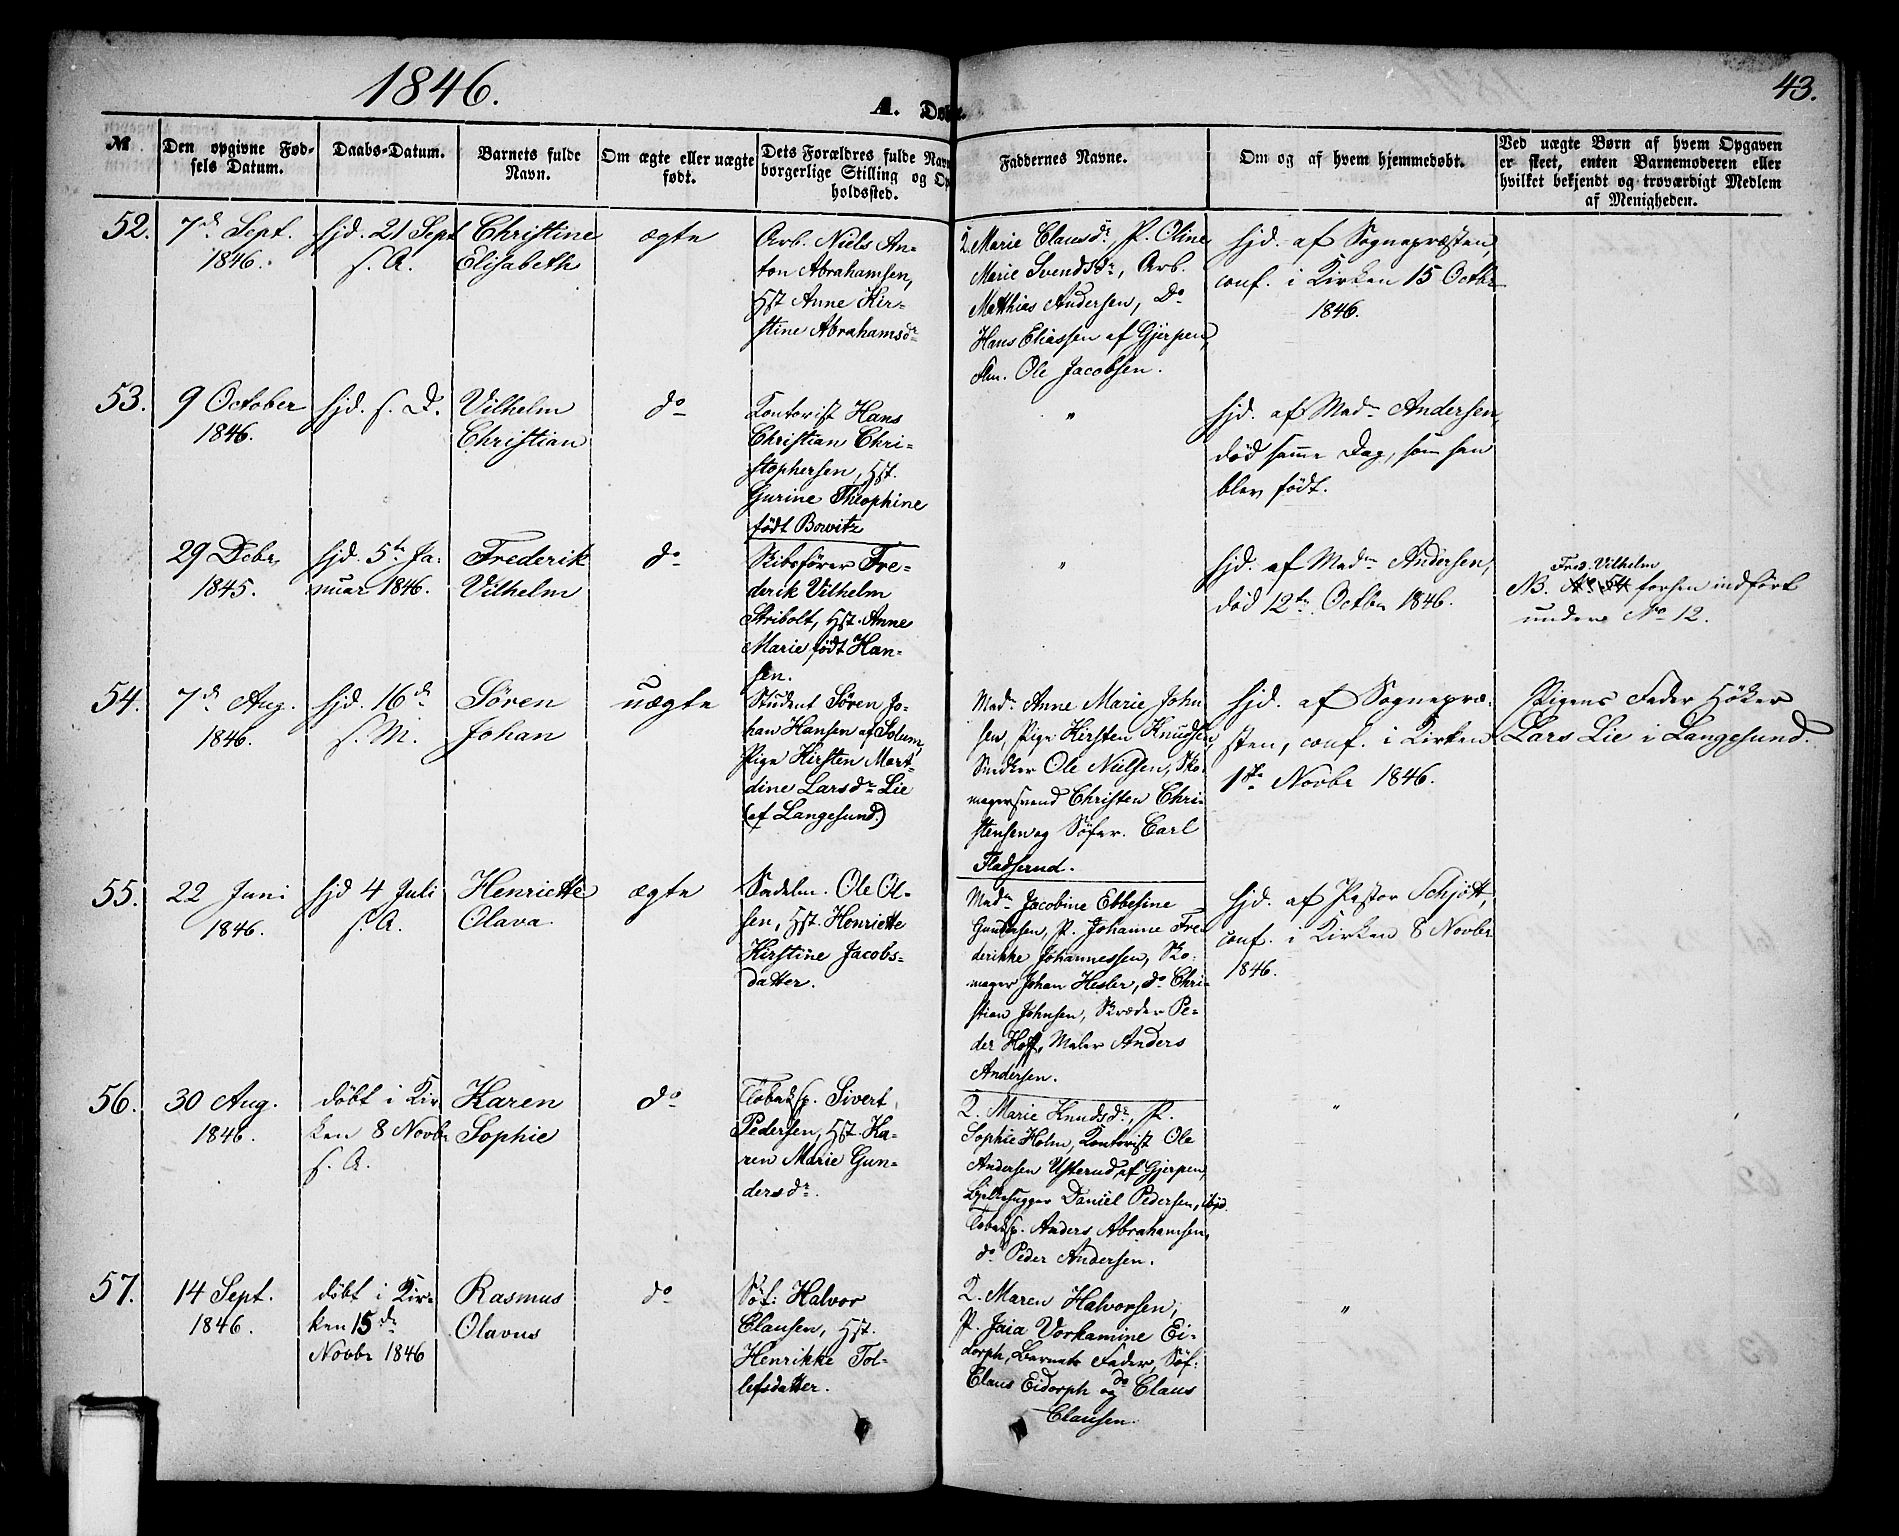 1846.
A. Døbte
43.
№
Den opgivne Fød-
sels Datum.
Daabs-Datum.
Barnets fulde
Navn.
Om ægte eller uægte
født.
Dets Forældres fulde Navn
borgerlige Stilling og Op
holdssted.
Faddernes Navne.
Om og af hvem hjemmedøbt.
Ved uægte Børn af hvem Opgaven
er skeet, enten Barnemoderen eller
hvilket bekjendt og troværdigt Medlem
af Menigheden.
52.
7de Sept.
1846.
hjd. 21 Sept
s. A.
Christine
Elisabeth
ægte
Arb. Niels An-
ton Abrahamsen,
Hst Anne Kir-
stine Abrahamsdr
Q. Marie Clausdr, P. Oline
Marie Svendsdr, Arb.
Matthias Andersen, Do
Hans Eliassen af Gjerpen,
Ole Jacobsen.
hjd. af Sognepræsten,
conf. i Kirken 15 Octbr
1846.
53.
9 October
1846.
hjd. s. D.
Vilhelm
Christian
do
Kontorist Hans
Christian Chri-
stophersen, Hst.
Gurine Theophine
født Bowitz
"
hjd. af Madm Andersen,
død samme Dag, som han
blev født.
29 Decbr
1845.
hjd. 5te Ja-
nuar 1846.
Frederik
Vilhelm
do
Skibsfører Fre-
derik Vilhelm
Stribolt, Hst. Anne
Marie født Han-
sen.
"
hjd. af Madm Andersen,
død 12te Octbr 1846.
Fred. Vilhelm
NB. No 54 forhen indført
under No 12.
54.
7de Aug.
1846.
hjd. 16de
s. M.
Søren
Johan
uægte
Student Søren Jo-
han Hansen af Solum,
Pige Kirsten Mart-
dine Larsdr Lie
(af Langesund)
Mad. Anne Marie John
sen, Pige Kirsten Knudsen,
Snedker Ole Nielsen, Sko-
magersvend Christen Chri-
stensen og Søfar. Carl
Fladserud.
hjd. af Sognepræ-
sten, conf. i Kirken
1ste Novbr 1846.
Pigens Fader Höker
Lars Lie i Langesund.
55.
22 Juni
1846.
hjd 4 Juli
s. A.
Henriette
Olava.
ægte
Sadelm. Ole Ol-
sen, Hst. Henriette
Kirstine Jacobs-
datter.
Madm Jacobine Ebbesine
Gundersen, P. Johanne Fre-
derikke Johannessen, Sko-
mager Johan Hesler, do Chri-
stian Johnsen, Skræder Pe-
der Hoff, Maler Anders
Andersen.
hjd. af Pastor Schjøtt,
conf. i Kirken 8 Novbr
1846.
56.
30 Aug.
1846.
døbt i Kir-
ken 8 Novbr
s. A.
Karen
Sophie
do
Tobaksp. Sivert
Pedersen, Hst. Ka-
ren Marie Gun-
dersdr.
Q. Marie Knudsdr, P.
Sophie Holm, Kontorist Ole
Andersen Usterud af Gjerpen,
Daniel Pedersen,
Tobaksp. Anders Abrahamsen,
do Peder Andersen.
"
57.
14 Sept.
1846.
døbt i Kir-
ken 15de
Novbr 1846
Rasmus
Olavus
do
Søf: Halvor
Clausen, Hst.
Henrikke Tol-
lefsdatter.
Q. Maren Halvorsen,
P. Jaia Vorkamine Ei-
dorph, Barnets Fader, Søf:
Claus Eidorph og do Claus
Clausen.
"